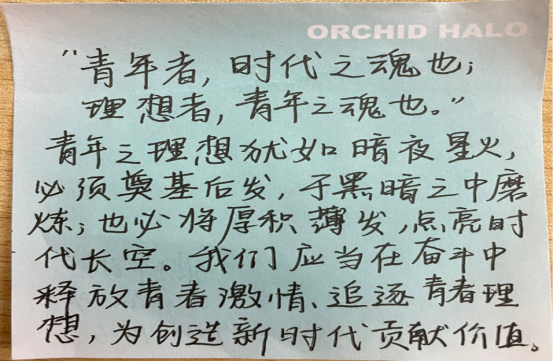 ORCHID HALO
“青年者，时代之魂也；
理想者，青年之魂也。”
青年之理想犹如暗夜星火，
必须奠基后发，于黑暗之中磨
炼；也必将厚积薄发，点亮时
代长空。我们应当在奋斗中
释放青者激情、追逐青者理
想，为创造新时代贡献价值。